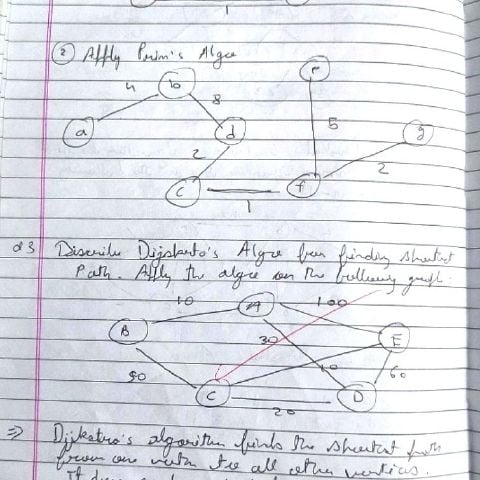 1
② Apply Prim's Algo
4 b 8 e
a d 5 g
2 2
c f
1
Q3 Describe Dijsketro's Algo for finding shortest
Path. Apply the algo on the following graph.
10 A 100
B 30 E
50 10 60
C D
20
⇒ Dijkstra's algorithm finds the shortest path
from one vertex to all other vertices.
It does